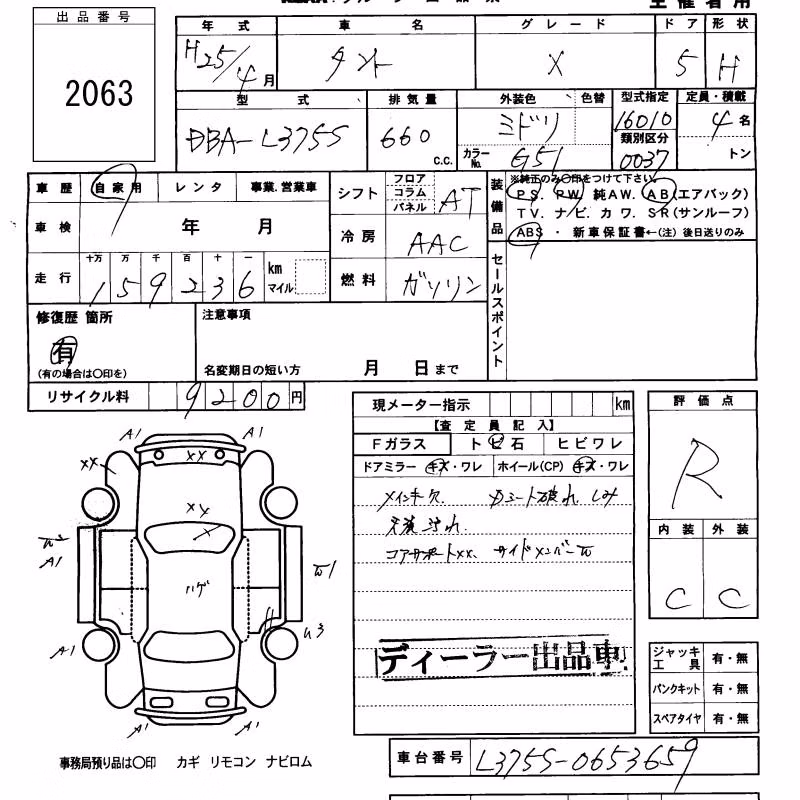 主催者用
出品番号
2063
年式 車名 グレード ドア 形状
H25/4月 タント X 5 H
型式 排気量 外装色 色替 型式指定 定員・積載
DBA-L375S 660 C.C. ミドリ 16010 4名
カラーNo. G51 類別区分 0037 トン
車歴 自家用 レンタ 事業.営業車
シフト フロア コラム パネル AT
装備品
※純正のみ〇印をつけて下さい
PS. PW. 純AW. AB(エアバック)
TV. ナビ. カワ. SR(サンルーフ)
ABS ・ 新車保証書←(注) 後日送りのみ
車検 年 月
冷房 AAC
走行 十万 万 千 百 十 一
159236 km マイル
燃料 ガソリン
セールスポイント
修復歴 箇所
有
(有の場合は〇印を)
注意事項
名変期日の短い方 月 日まで
リサイクル料 9200円
現メーター指示 km
【査定員記入】
Fガラス トビ石 ヒビワレ
ドアミラー キズ・ワレ ホイール(CP) キズ・ワレ
メインキー欠 Dシート破れ しみ
天張汚れ
コアサポートXX. サイドメンバーW
ディーラー出品車!
評価点
R
内装 外装
C C
ジャッキ工具 有・無
パンクキット 有・無
スペアタイヤ 有・無
A1 A1
XX XX
XY
X
W3
A1
ハゲ
W1
A1 U3
A1 A1
事務局預り品は〇印 カギ リモコン ナビロム
車台番号 L375S-0653659